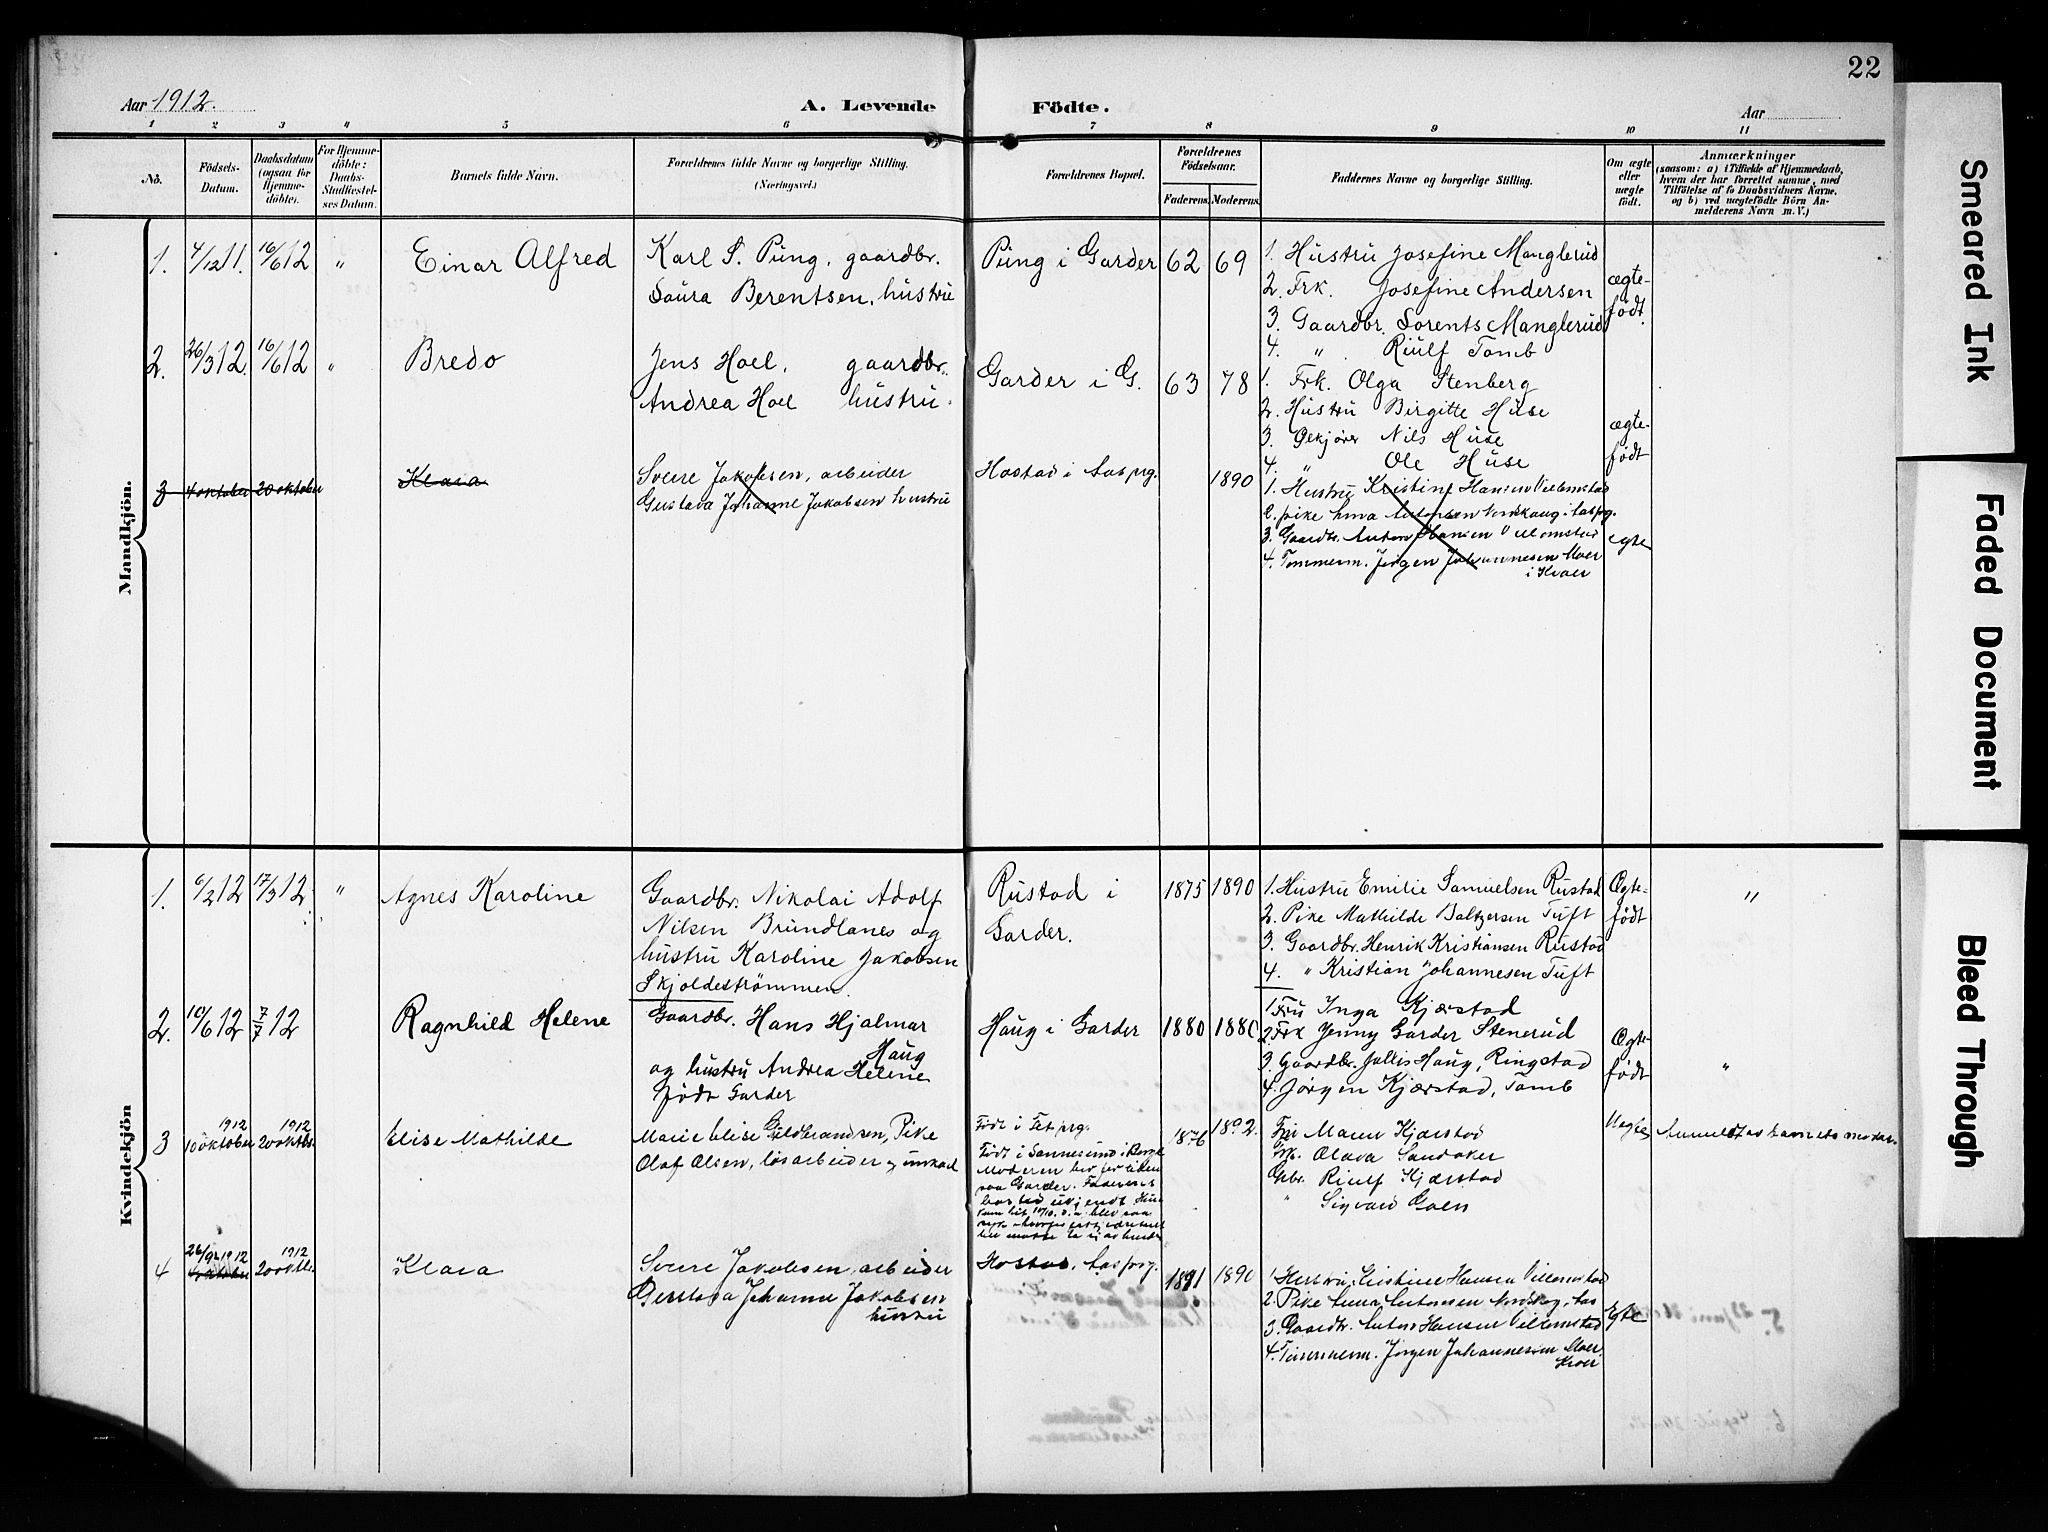 22
Aar 1912.
A. Levende Födte.
Aar
1 2 3 4 5 6 7 8 9 10 11
No.
Födsels-Datum.
Daabsdatum (ogsaa for Hjemme-döbte).
For Hjemme-döbte: Daabs-Stadfæstel-ses Datum.
Barnets fulde Navn.
Forældrenes fulde Navne og borgerlige Stilling.
(Næringsvei.)
Forældrenes Bopæl.
Forældrenes Födselsaar.
Faderens. Moderens.
Faddernes Navne og borgerlige Stilling.
Om ægte eller uægte födt.
Anmærkninger
(saasom: a) i Tilfælde af Hjemmedaab,
hvem der har forrettet samme, med
Tilföielse af to Daabsvidners Navne,
og b) ved uægtefödte Börn An-
melderens Navn m. V.)
Mandkjön.
1. 4/12 11. 16/6 12 " Einar Alfred
Karl S. Pung, gaardbr.
Laura Berentsen, hustru
Pung i Garder 62 69
1. Hustru Josefine Manglerud
2. Frk. Josefine Andersen
3. Gaardbr. Lorents Manglerud
4. " Riulf Tomb
ægte-
født.
2. 26/3 12. 16/6 12 " Bredo
Jens Hoel, gaardbr.
Andrea Hoel hustru.
Garder i G. 63 78
1. Frk. Olga Stenberg
2. Hustru Birgitte Huse
3. Ølkjører Nils Huse
4. " Ole Huse
ægte-
født
3 4 oktober 20 oktober Klara
Sverre Jakobsen, arbeider
Gustava Johanne Jakobsen hustru
Hostad i Aas prg. 1890
1. Hustru Kristine Hansen Villemstad
2. pike Anna Antonsen Nordskaug i Aas prg.
3. Gaardbr. Anton Hansen Villemstad
4. Tømmerm. Jørgen Johannesen Moer
i Kroer
egte
Kvindekjön
1. 6/2 12 17/3 12 " Agnes Karoline
Gaardbr. Nikolai Adolf
Nilsen Brundlanes og
hustru Karoline Jakobsen
Skjoldestrømmen.
Rustad i
Garder.
1875 1890
1. Hustru Emilie Samuelsen Rustad
2. Pike Mathilde Baltzersen Tuft
3. Gaardbr. Henrik Kristiansen Rustad
4. " Kristian Johannesen Tuft
Ægte-
født
"
2. 10/6 12 7/7 12 Ragnhild Helene
Gaardbr. Hans Hjalmar
Haug
og hustru Andrea Helene
født Garder
Haug i Garder 1880 1880
1. Fru Inga Kjærstad
2. Frk Jenny Garder Stenerud
3. Gaardbr. Jallis Haug, Ringstad
4. Jørgen Kjærstad, Tomb
Ægte-
født
"
3 1912 10 oktober 1912 20 oktbr. Elise Mathilde
Marie Elise Guldbrandsen, Pike
Olaf Olsen, løsarbeider og unkarl
Født i Fet prg.
Født i Sannesund i Borge
Moderen bor for tiden
paa Garder.
1876 1892.
Fru Maren Kjærstad
Frk. Olava Sandaker
Gbr. Riulf Kjærstad
" Sigvard Goen
Uegte
Anmeldt av barnets moder
4 26/9 1912 4 oktober 1912 20 oktbr. Klara
Sverre Jakobsen, arbeider
Gustava Johanne Jakobsen
hustru
Hostad, Aas prg. 1891 1890
1. Hustru Kristine Hansen Villemstad
2. Pike Anna Antonsen Nordskog, Aas
3. Gaardbr. Anton Hansen Villemstad
4. Tømmerm. Jørgen Johannesen Moer
Kroer
Egte
Smeared Ink
Faded Document
Bleed Through